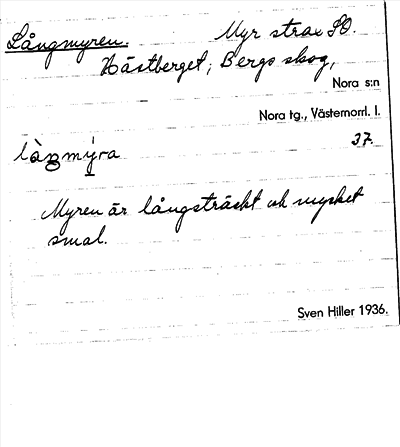 Långmyren. Myr strax SO.
Hästberget, Bergs skog,
Nora s:n
Nora tg., Västernorrl. l.
37.
Myren är långsträckt och mycket
smal.
Sven Hiller 1936.